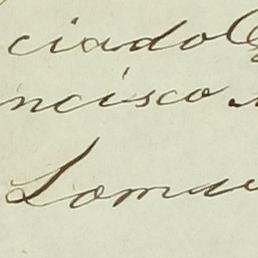 ciado
ncisco
Lomas